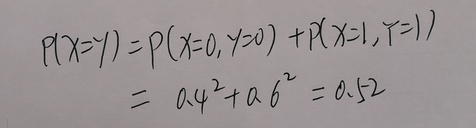 P(X=Y) = P(X=0, Y=0) + P(X=1, Y=1)
= 0.4² + 0.6² = 0.52